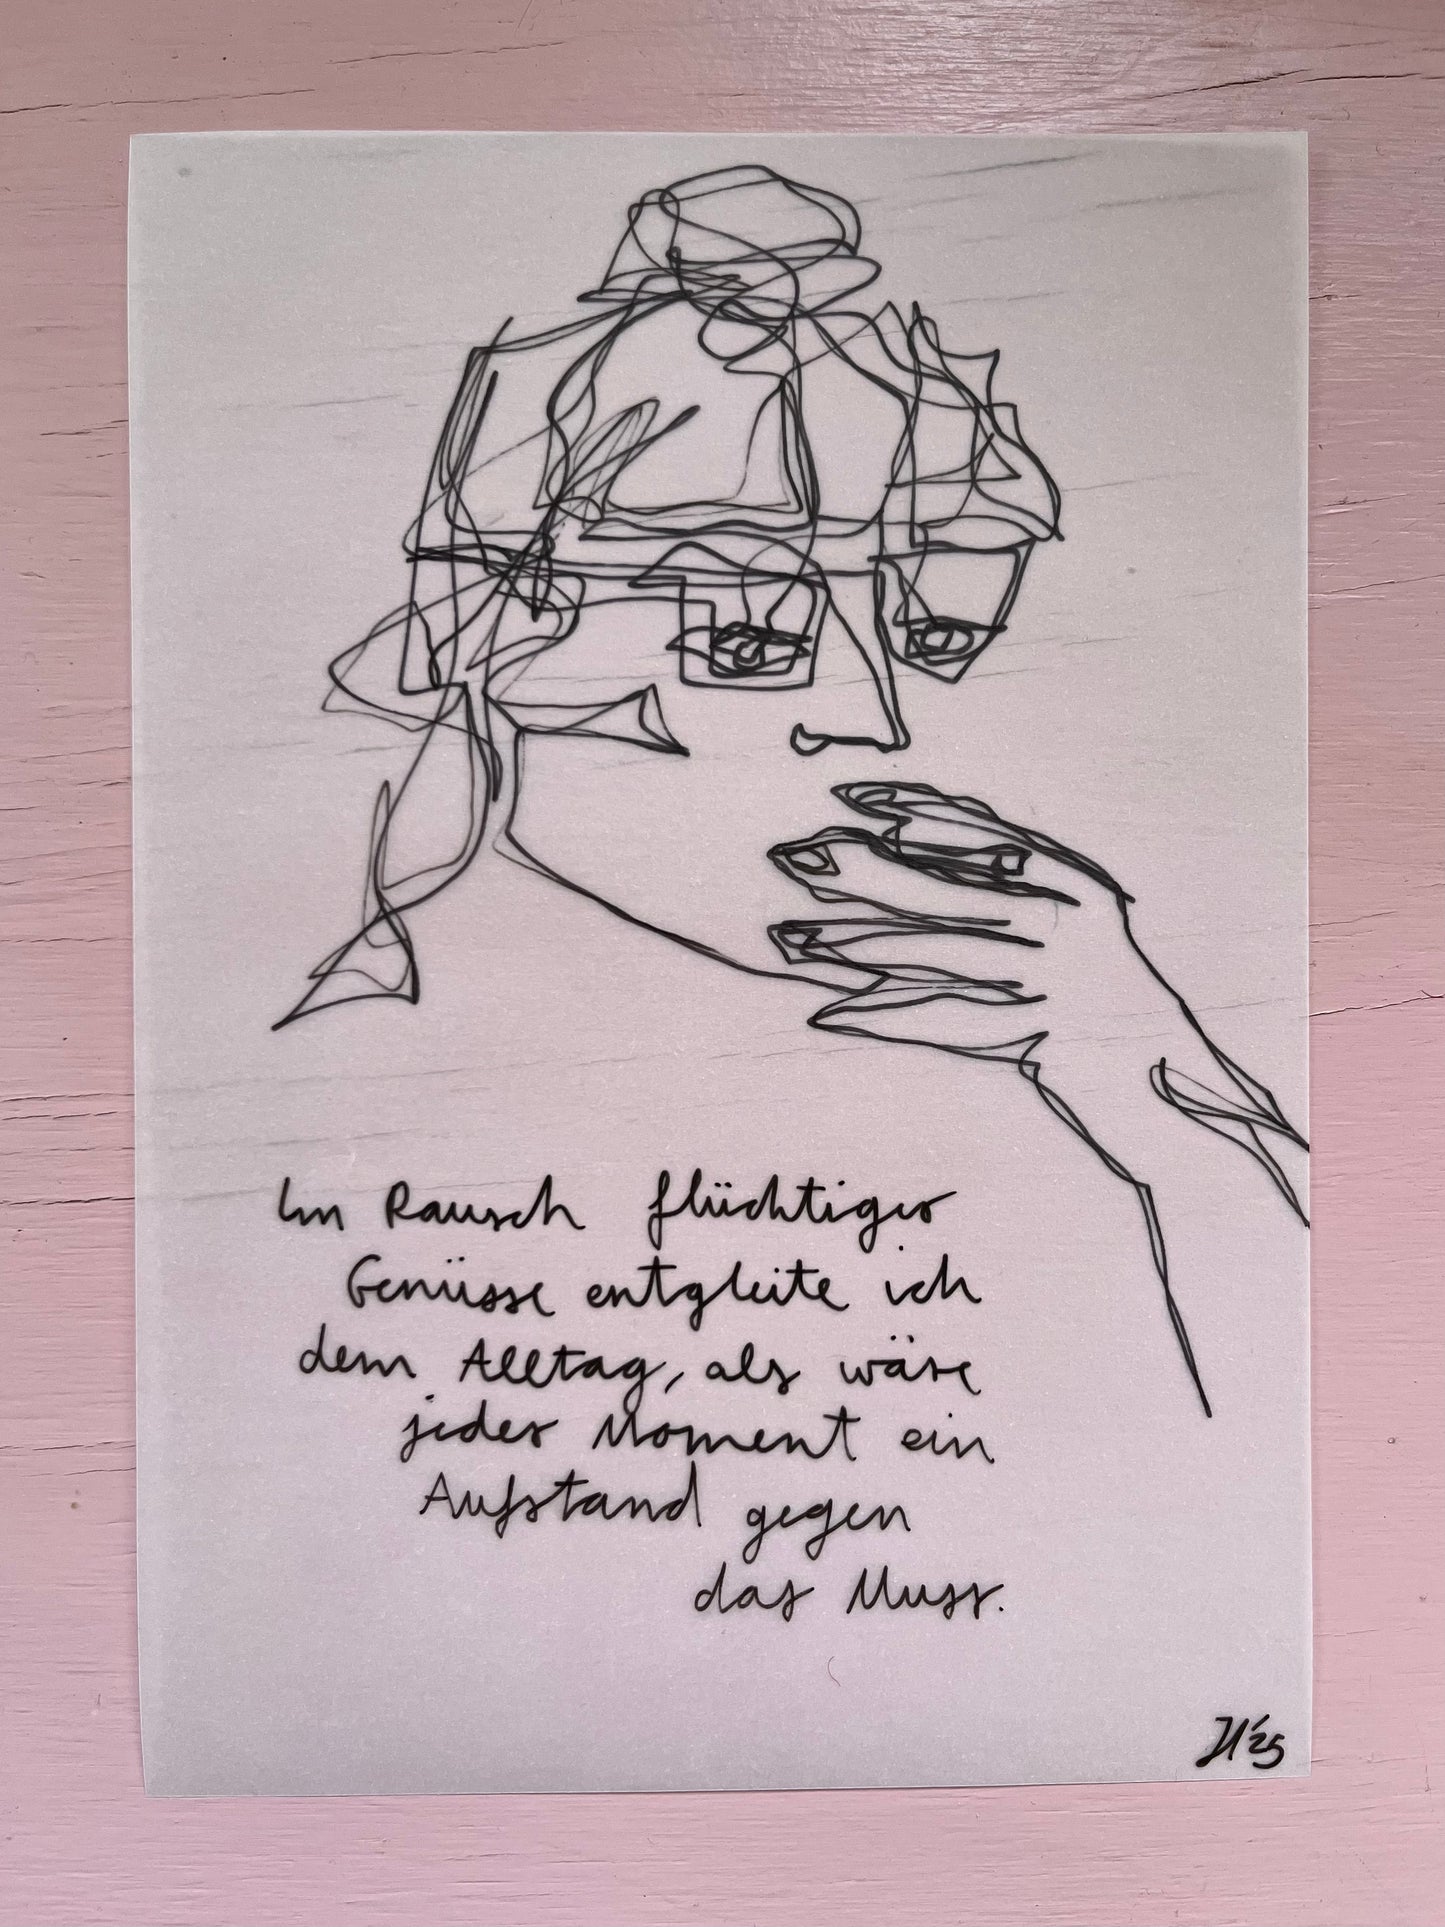 Im Rausch flüchtiger
Genüsse entgleite ich
dem Alltag, als wäre
jedes Moment ein
Aufstand gegen
das Muss.
JH'25